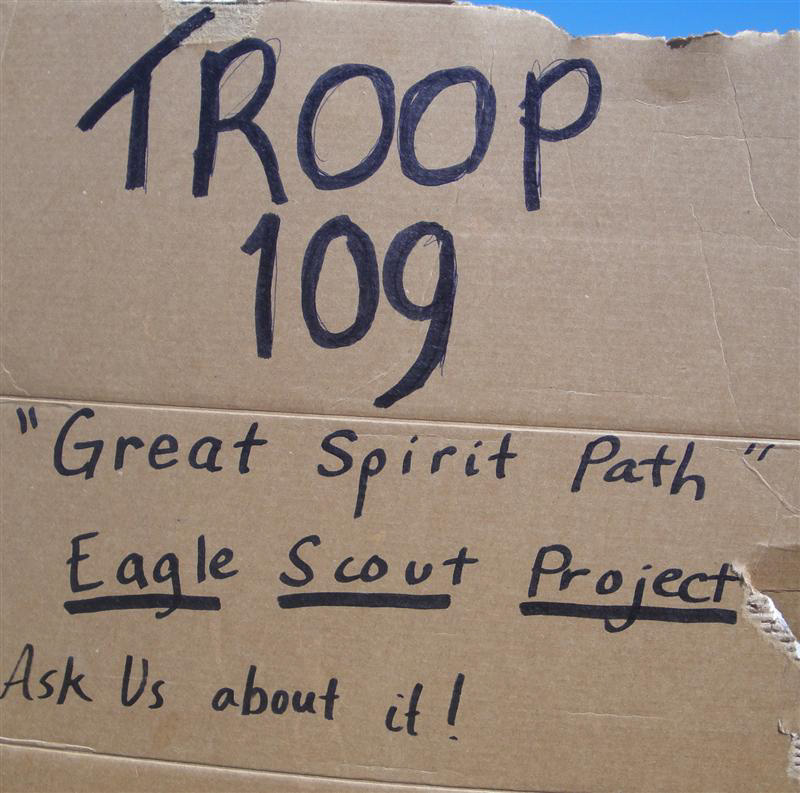 TROOP
109
"Great Spirit Path"
Eagle Scout Project
Ask Us about it!